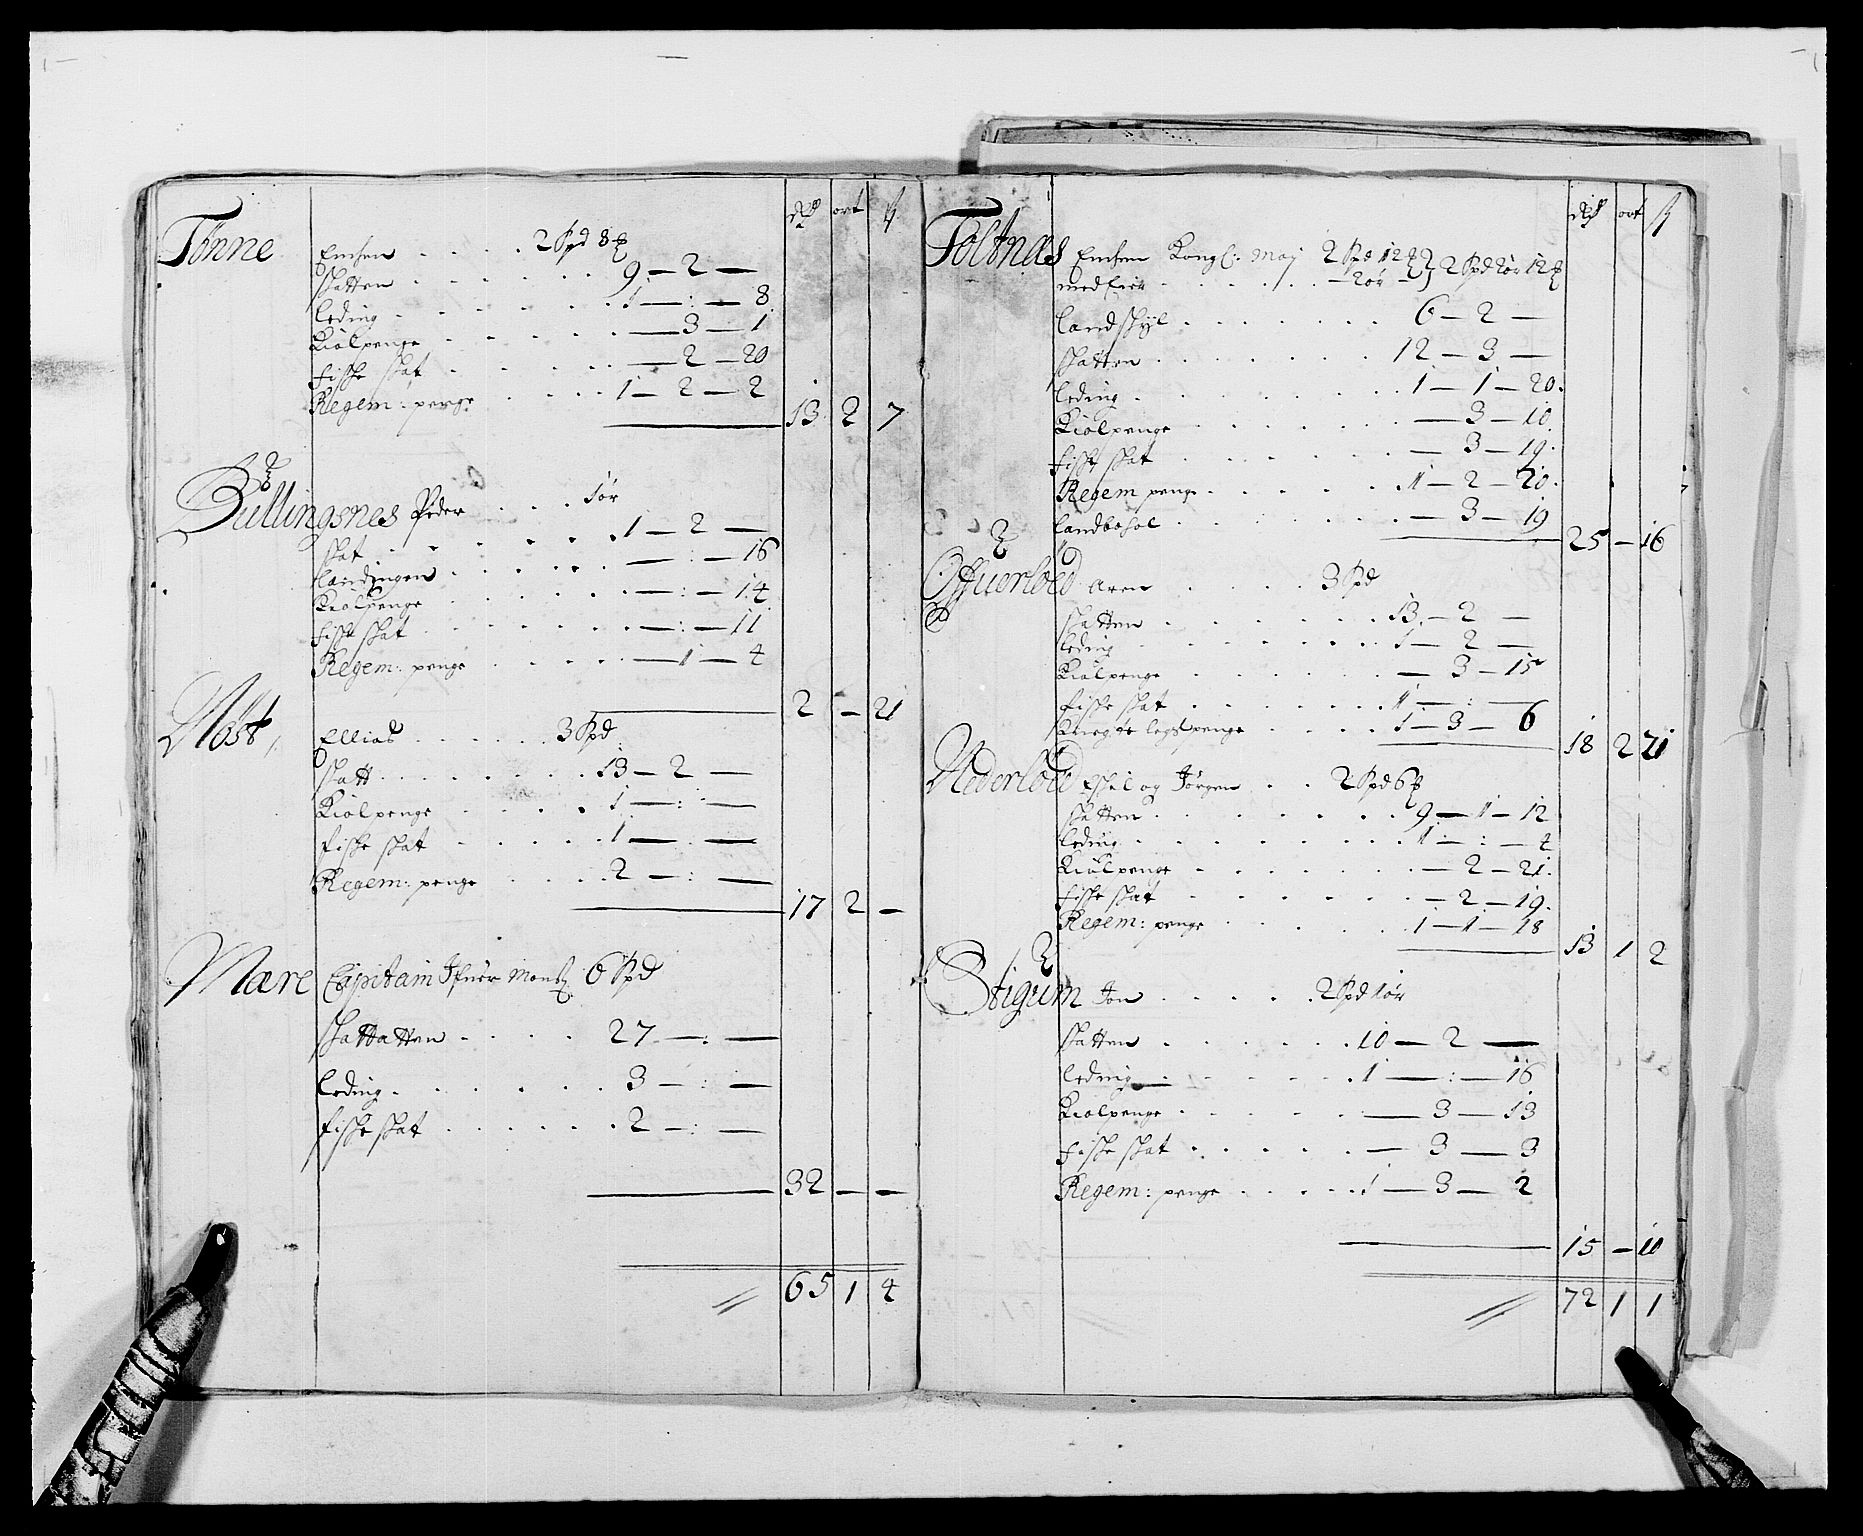 dlr ort ß
Tønne
Enchen . . . . 2 Spd 8 ℔
skatten . . . . . . 9 — 2 —
leding . . . . . . 1 — : — 8
Kiølpenge . . . . . — 3 — 1
fiske skat . . . . . — 2 — 20
Regem: penge . . . . 1 — 2 — 2
13 2 7
Bullingsnes Peder . . . 1 ør
skat . . . . . 1 — 2 —
. . . . . — : — 16
Kiølpenge . . . . . — : — 14
fiske skat . . . . . — : — 11
Regem: penge . . . . — 1 — 4
2 — 21
Møst,
Ellias . . . . . 3 Spd
skatt . . . . . . 13 — 2 —
Kiølpenge . . . . 1 — : —
fiske skat . . . . . 1 — : —
Regem: penge . . . . 2 — : —
17 2 —
Mære Capitain 6 Spd
skattatten . . . . 27 — : —
leding . . . . . . 3 — : —
fiske skat . . . . . . 2 — : —
32 — —
65 1 4
dlr ort ß
Toltnæs Enchen Kongl: May 2 Spd 12 ℔ } 2 Spd 2 ør 12 ℔
med Eier . . . . . . — 2 ør —
landskyl . . . . . . 6 — 2 —
skatten . . . . . . 12 — 3 —
leding . . . . . . 1 — 1 — 20
Kiølpenge . . . . . . — 3 — 10
fiske skat . . . . . . — 3 — 19
Regem penge . . . . . 1 — 2 — 20
landbohol . . . . . . — 3 — 19
25 — 16
Offuerloed Aren . . . . 3 Spd
skatten . . . . . . 13 — 2 —
leding . . . . . . 1 — 2 —
Kiølpenge . . . . . . — 3 — 15
fiske skat . . . . . . 1 — : —
legs penge . . . . 1 — 3 — 6
18 2 21
Nederloed Eskel og Jørgen . . 2 Spd 6 ℔
skatten . . . . . . 9 — 1 — 12
leding . . . . . . 1 — : — 4
Kiølpenge . . . . . . — 2 — 21
fiske skat . . . . . . — 2 — 19
Regem: penge . . . . . 1 — 1 — 18
13 1 2
Stigum Jon . . . . . 2 Spd 1 ør
skatten . . . . . . 10 — 2 —
leding . . . . . . 1 — : — 16
Kiølpenge . . . . . — 3 — 13
fiske skat . . . . . — 3 — 3
Regem: penge . . . . 1 — 3 — 2
15 — 10
72 1 1